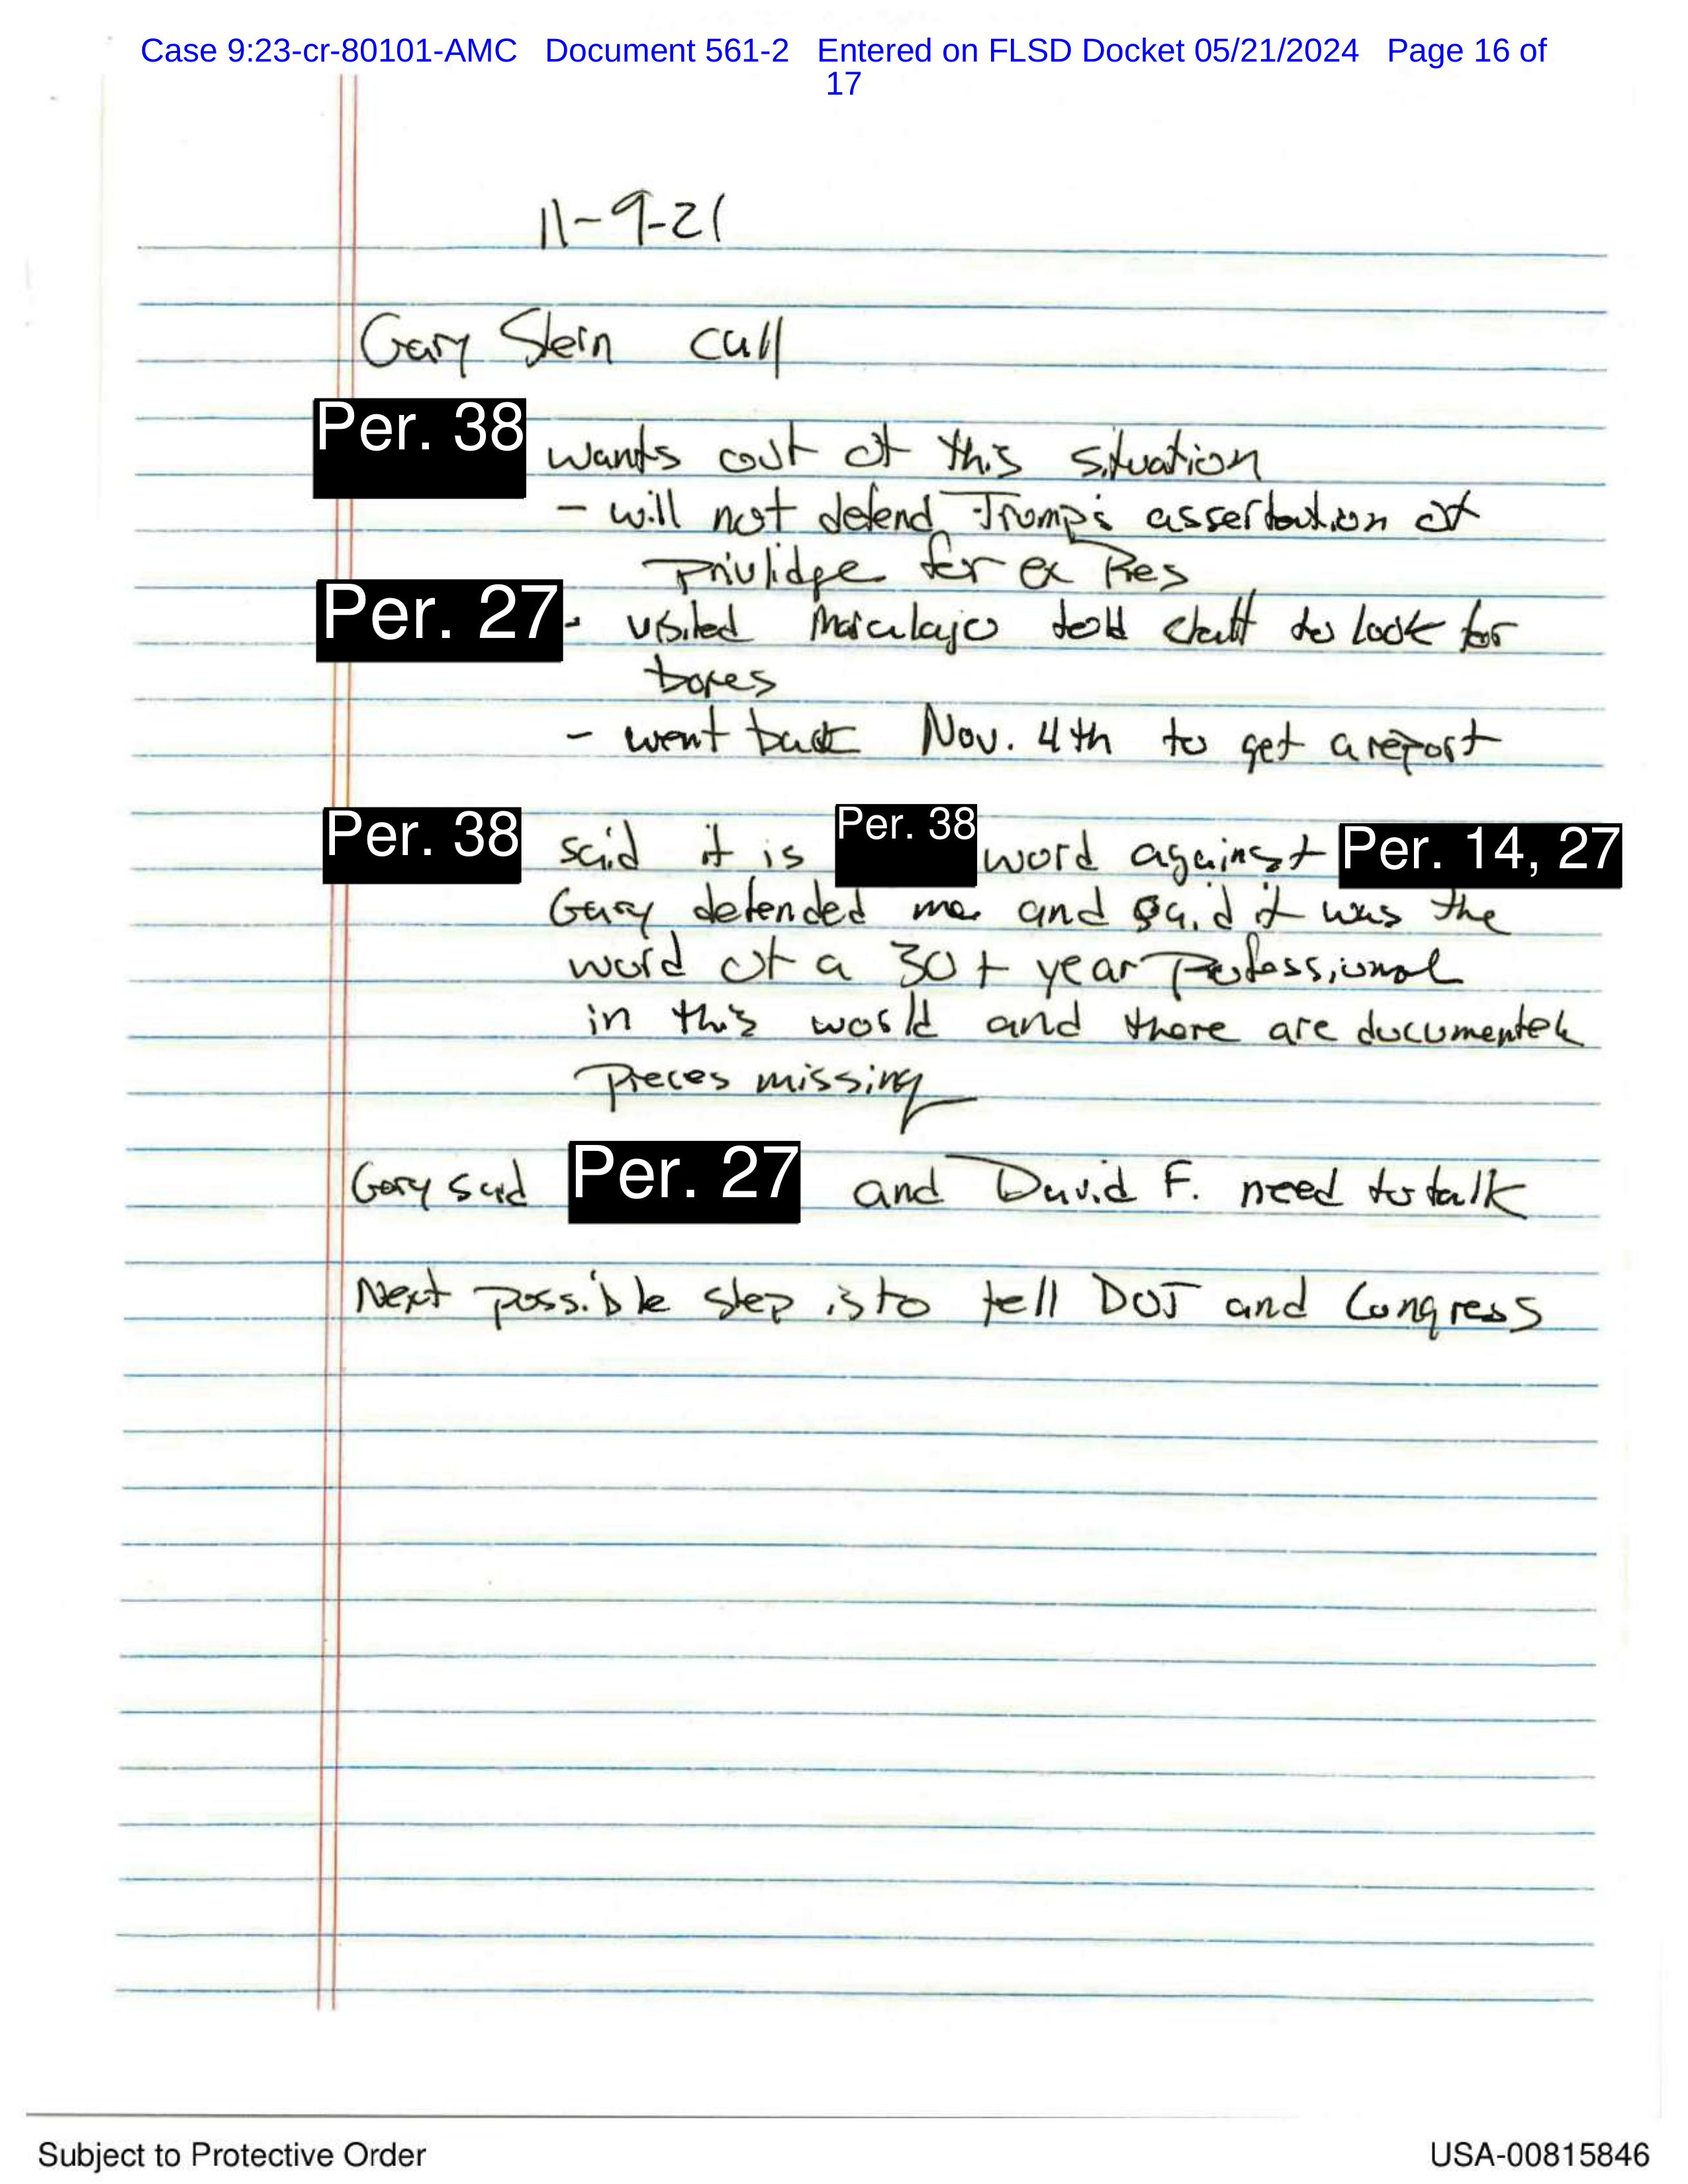 Case 9:23-cr-80101-AMC Document 561-2 Entered on FLSD Docket 05/21/2024 Page 16 of
17
11-9-21
Gary Stern call
Per. 38 wants out of this situation
- will not defend Trump's assertaution of
privlidge for ex Pres
Per. 27 - visited Maralajo told staff to look for
boxes
- went back Nov. 4th to get a report
Per. 38 said it is Per. 38 word against Per. 14, 27
Gary defended me and said it was the
word of a 30+ year professional
in this world and there are documented
pieces missing
Gary said Per. 27 and David F. need to talk
Next possible step is to tell DOJ and Congress
Subject to Protective Order
USA-00815846